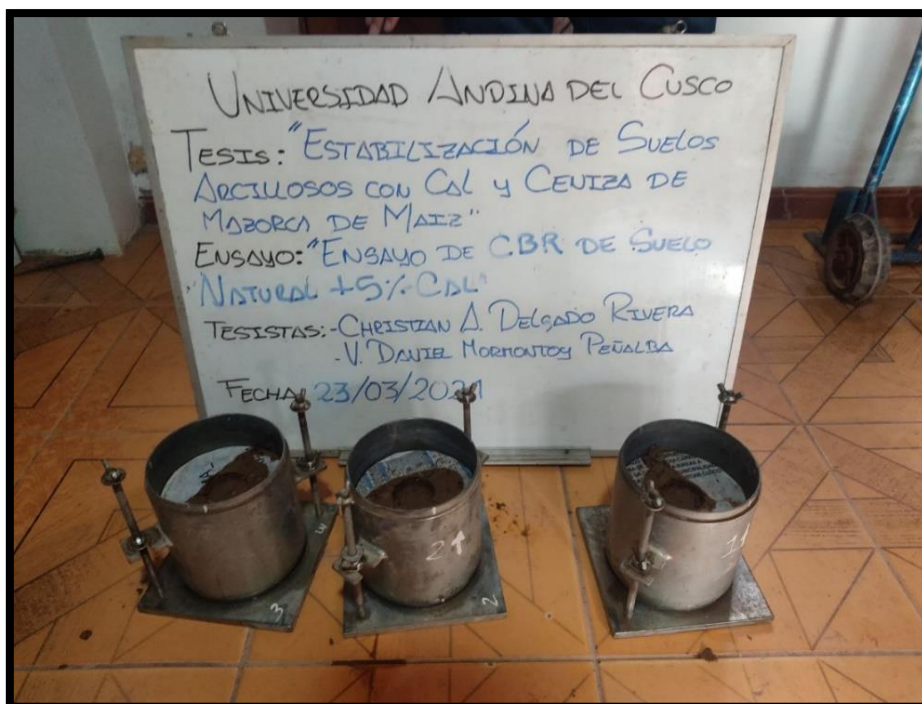 UNIVERSIDAD ANDINA DEL CUSCO
TESIS: "ESTABILIZACIÓN DE SUELOS
ARCILLOSOS CON CAL Y CENIZA DE
MAZORCA DE MAIZ"
ENSAYO: "ENSAYO DE CBR DE SUELO
NATURAL +5% CAL"
TESISTAS: - CHRISTIAN A. DELGADO RIVERA
- V. DANIEL MORMONTOY PEÑALBA
FECHA: 23/03/2021
3
2
2
1